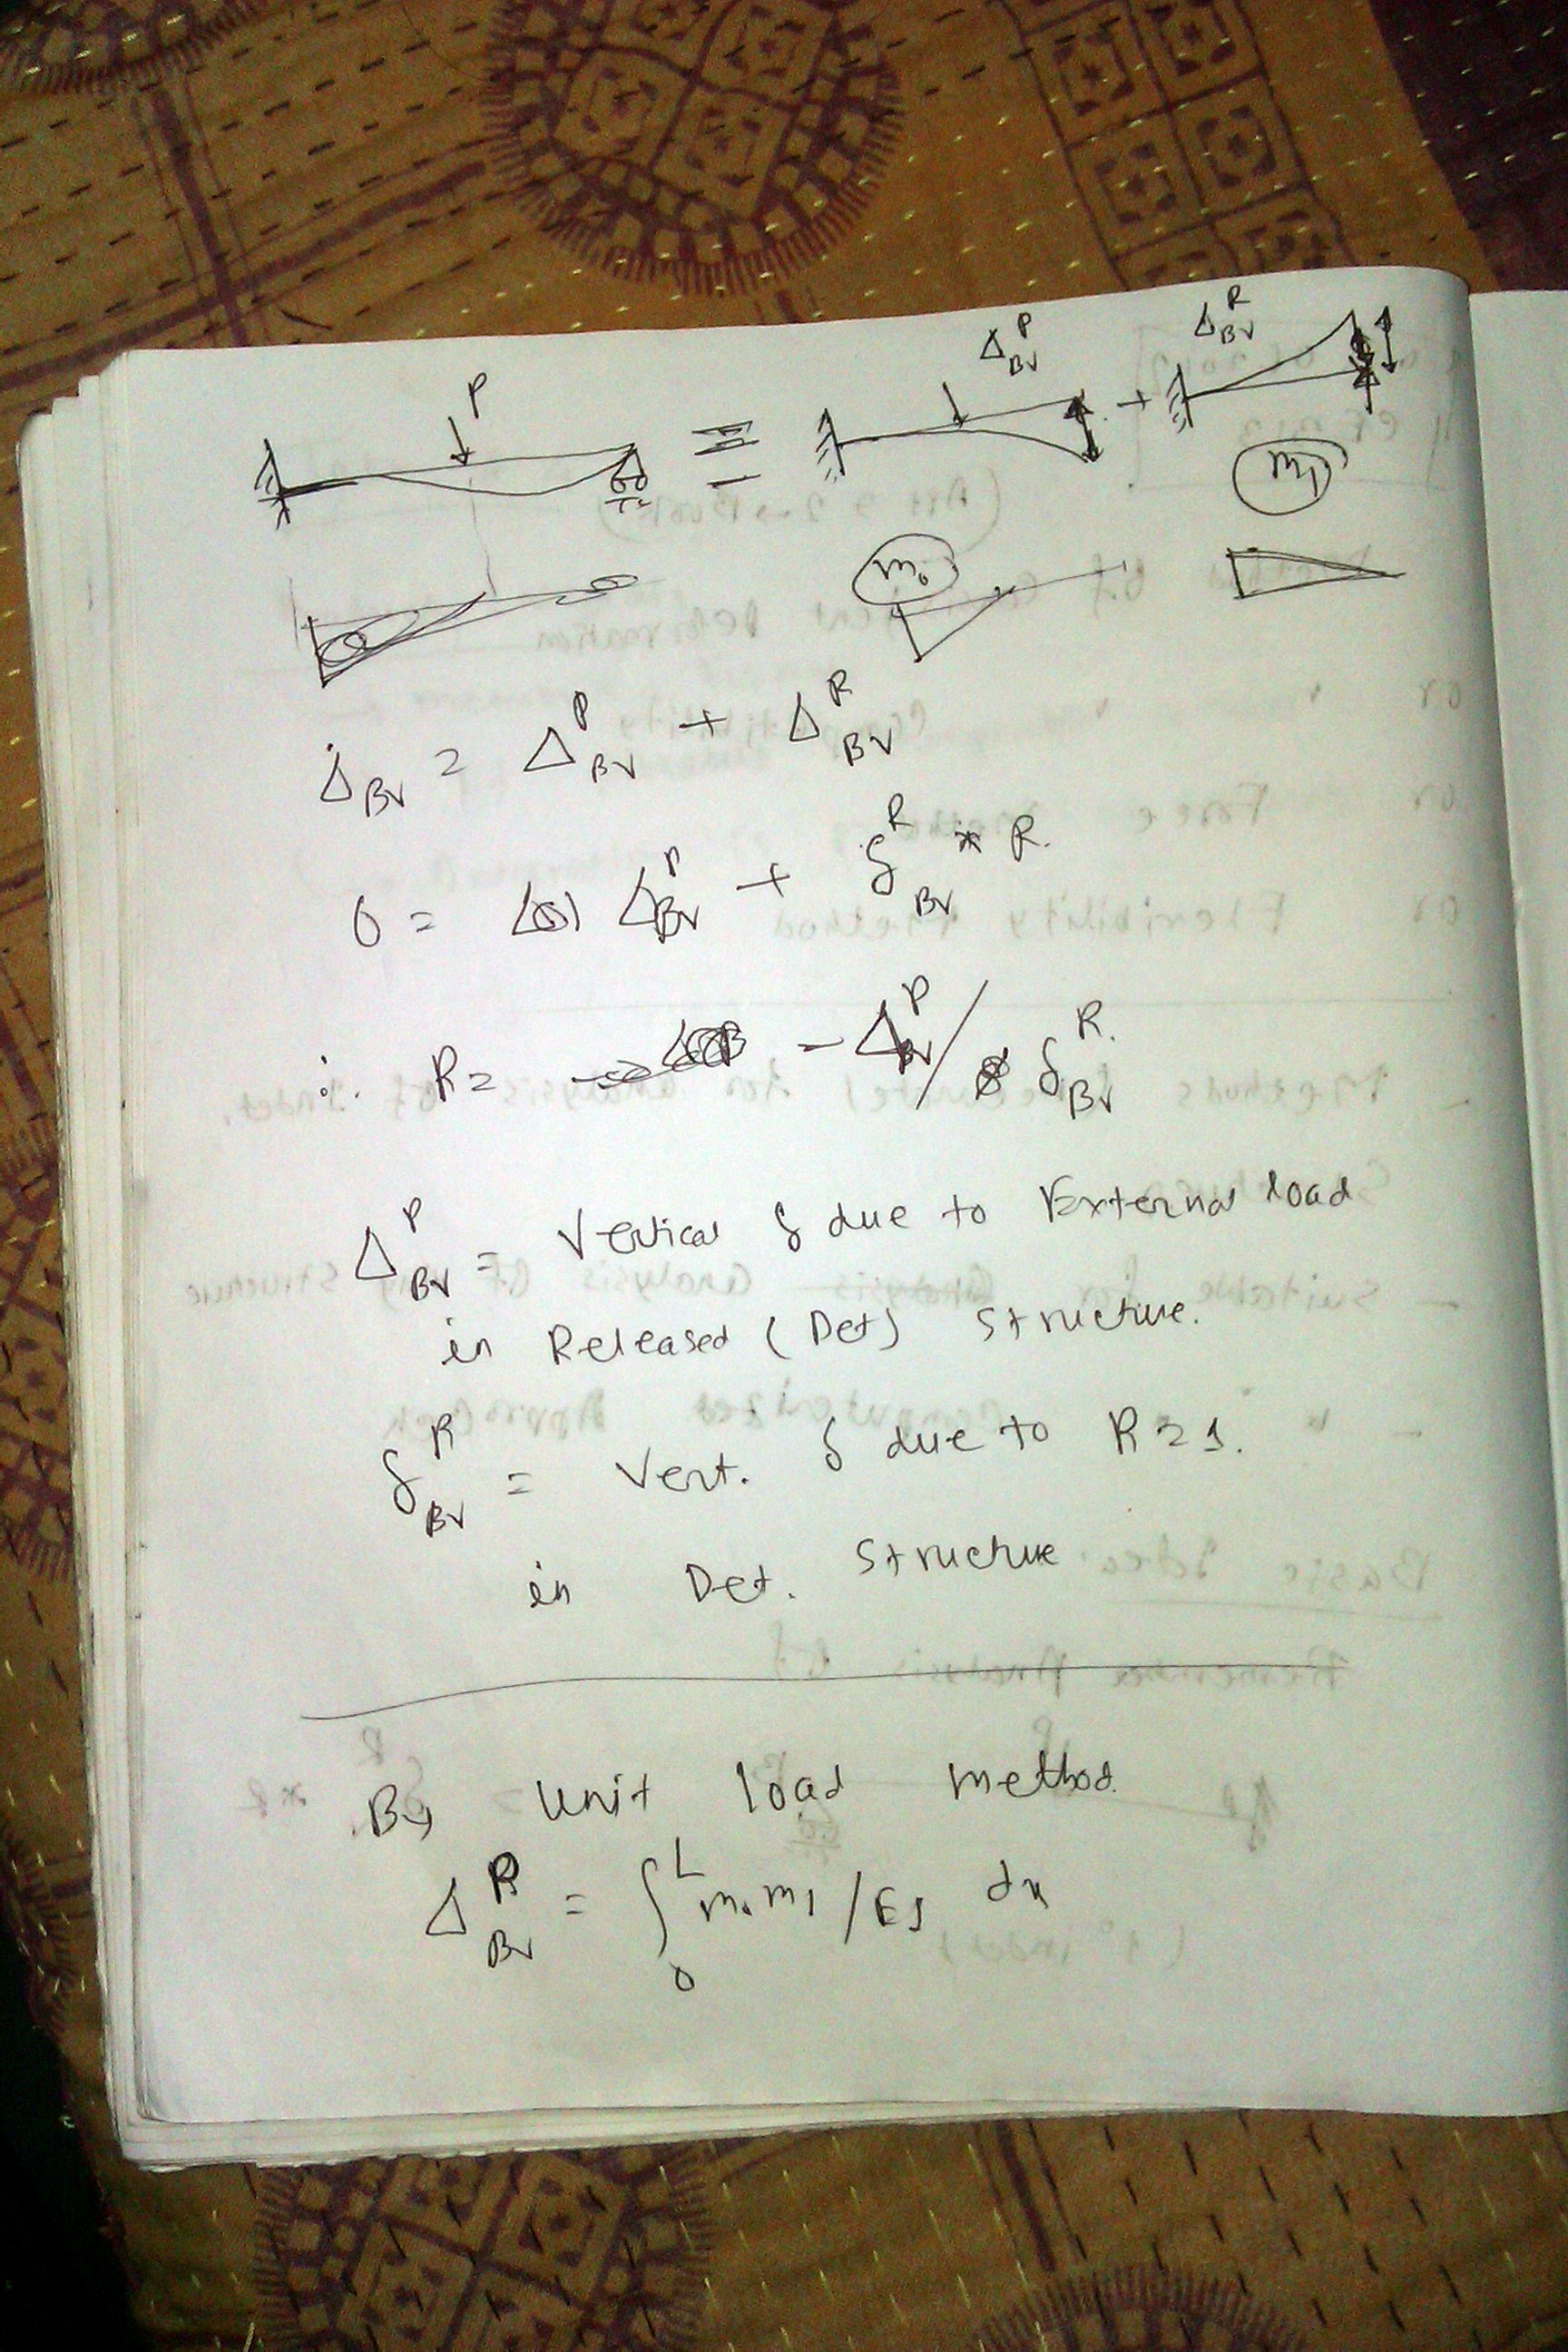 P
Δ_BV^P
Δ_BV^R
=
+
m₀
m₁
Δ_BV = Δ_BV^P + Δ_BV^R
0 = Δ_BV^P + δ_BV^R * R.
∴ R = - Δ_BV^P / δ_BV^R.
Δ_BV^P = Vertical δ due to External load
in Released (Det) Structure.
δ_BV^R = Vert. δ due to R = 1.
in Det. Structure
By Unit load method
Δ_BV^P = ∫₀^L m₀ m₁ / EI dx